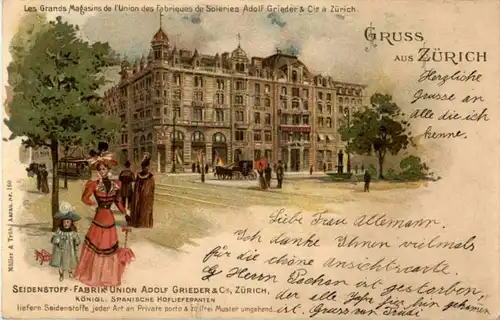 Les Grands Magasins de l'Union des Fabriques de Soieries Adolf Grieder & Cie à Zürich.
GRUSS
AUS ZÜRICH
Herzliche
Grüsse an
Alle die ich
kenne.
Müller & Trüb, Aarau. Nr. 160
Liebe Frau Allemann.
Ich danke Ihnen vielmals
für die schöne Ansichtscarte.
Herrn ist gestorben,
der alle Jahr hier hin gekommen
ist. Gruss von Trudi
SEIDENSTOFF-FABRIK UNION ADOLF GRIEDER & CIE, ZÜRICH,
KÖNIGL. SPANISCHE HOFLIEFERANTEN
liefern Seidenstoffe jeder Art an Private porto & zollfrei Muster umgehend.